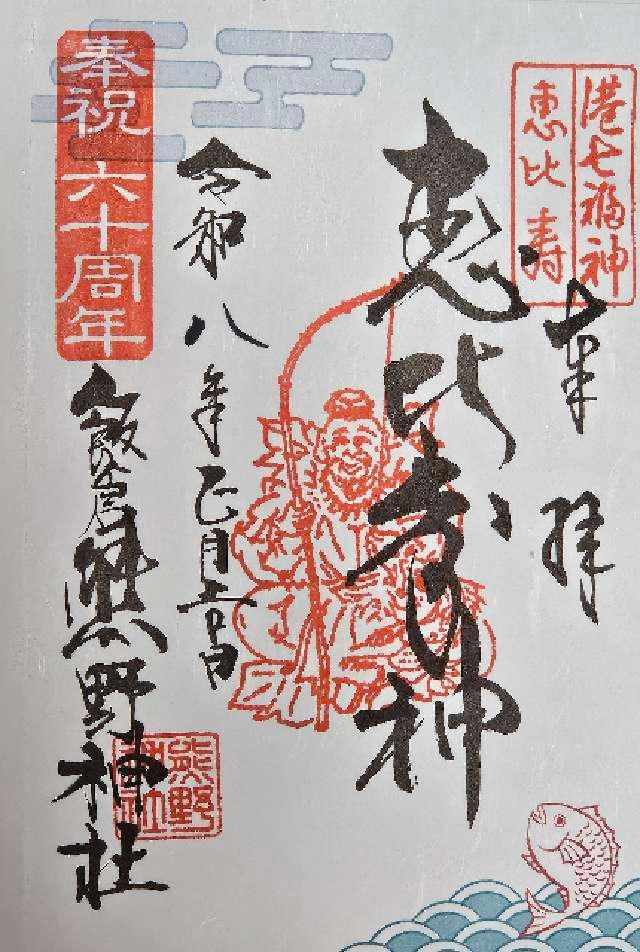 港七福神
恵比寿
奉拝
恵比寿神
令和八年正月五日
奉祝六十周年
飯倉熊野神社
熊野
神社